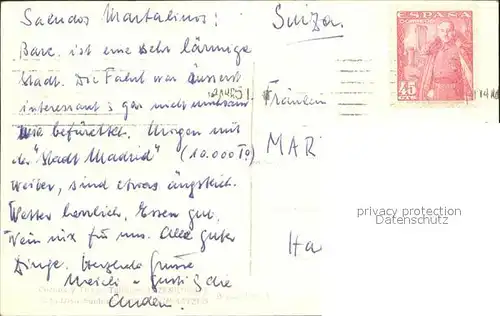 Saludos Martalinos!
Barc. ist eine sehr lärmige
Stadt. Die Fahrt war äusserst
interessant & gar nicht
wie befürchtet. Morgen mit
der "Stadt Madrid" (10.000 To)
weiter, sind etwas ängstlich.
Wetter herrlich, Essen gut.
Wein nix für uns. Alle guter
Dinge. Herzliche Grüsse
die
Andern.
Suiza.
ESPAÑA
CORREOS
45
CTS
Fräulein
MAR
privacy protection
Datenschutz
Ha